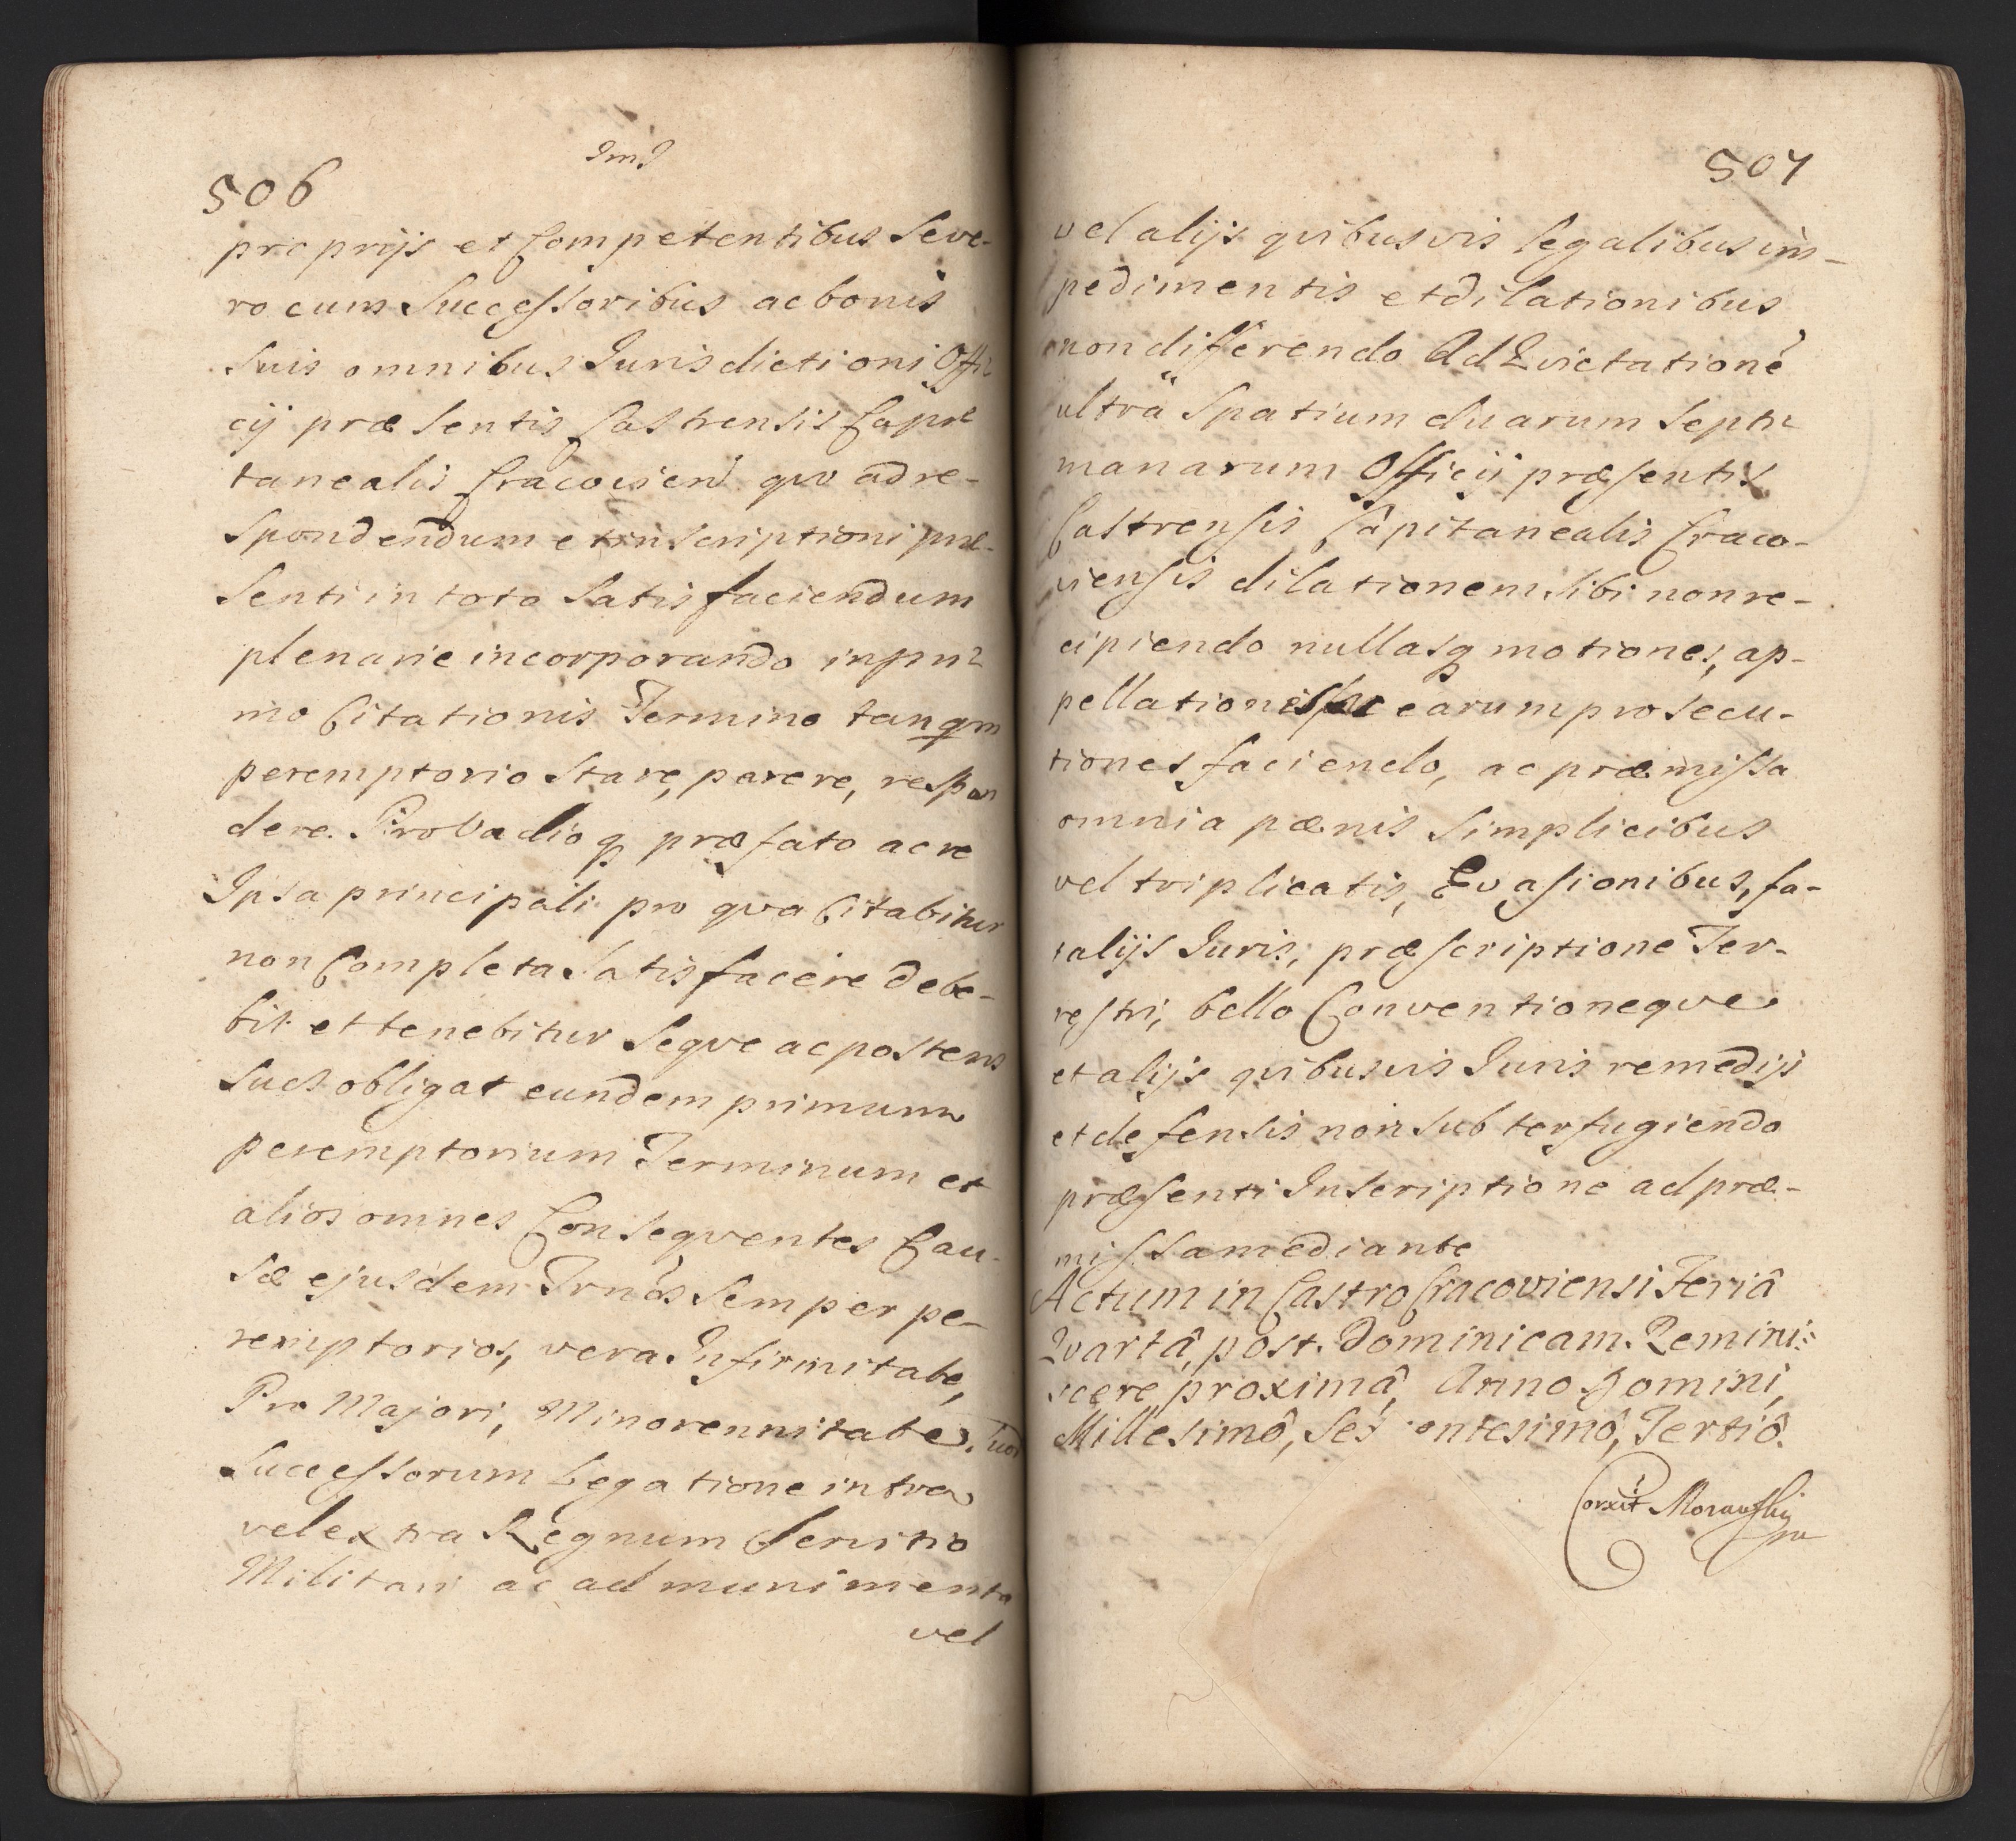 506
proprijs et Competentibus Seve-
ro cum Successoribus ac bonis
Suis omnibus Jurisdictioni Offi-
cij præsentis Castrensis Capi-
tanealis Cracovien quo ad re-
spondendum et inscriptioni præ-
senti in toto Satisfaciendum
plenarie incorporando in pri-
mo Citationis Termino tanqm
peremptorio Stare, parere, respon
dere. Pro Vadioq præfato ac re
Ipsa principali pro qva Citabitur
non Completa Satisfacere debe-
bit et tenebitur Seqve ac posteros
Suos obligat eundem primum
peremptorium Terminum et
alios omnes Conseqventes Cau-
sæ ejusdem Trnos Semper pe-
remptorios, vera Infirmitate,
Pro Majori, Minorennitate Suor
Successorum Legatione intra
vel extra Regnum Servitio
Militari ac ad munimenta
vel
507
vel alijs qvibusvis legalibus im-
pedimentis et dilationibus
non differendo Ad Evictatione
ultra Spatium duarum Septi-
manarum Officij præsentis
Castrensis Capitanealis Craco-
viensis dilationem Sibi non re-
cipiendo nullasq motiones, ap-
pellationes earum prosecu-
tiones faciendo, ac præmissa
omnia pænis Simplicibus
vel triplicatis, Evasionibus, fa-
talijs Juris, præscriptione Ter-
restri, bello Conventioneqve
et alijs qvibusvis Juris remedijs
et defensis non Subterfugiendo
præsenti Inscriptione ad præ-
missa mediante
Actum in Castro Cracoviensi Feriâ
Qvartâ, post. Dominicam. Remini-
scere, proximâ, Anno Domini,
Millesimô, Sexcentesimô, Tertiô.
Corxit Morawski
mp